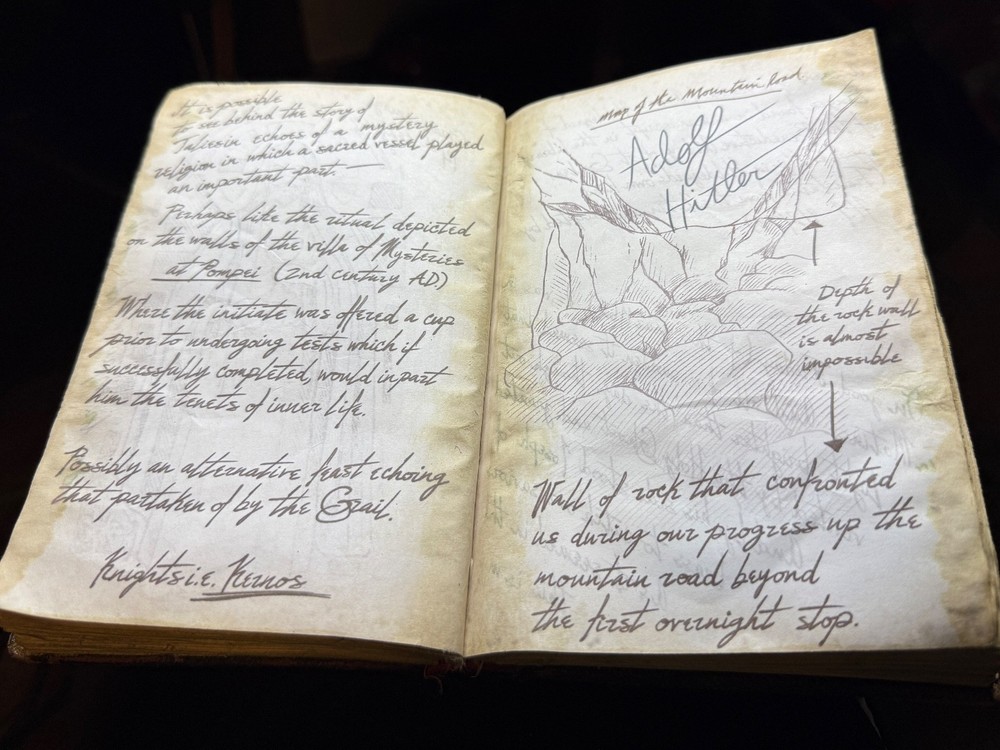 It is possible
to see behind the story of
Taliesin echoes of a mystery
religion in which a sacred vessel played
an important part.
Perhaps like the ritual depicted
on the walls of the villa of Mysteries
at Pompei (2nd century AD)
Where the initiate was offered a cup
prior to undergoing tests which if
successfully completed, would inpart
him the tenets of inner life.
Possibly an alternative feast echoing
that partaken of by the Grail.
Knights i.e. Kernos
Map of the Mountain road
Adolf
Hitler
Depth of
the rock wall
is almost
impossible
Wall of rock that confronted
us during our progress up the
mountain road beyond
the first overnight stop.